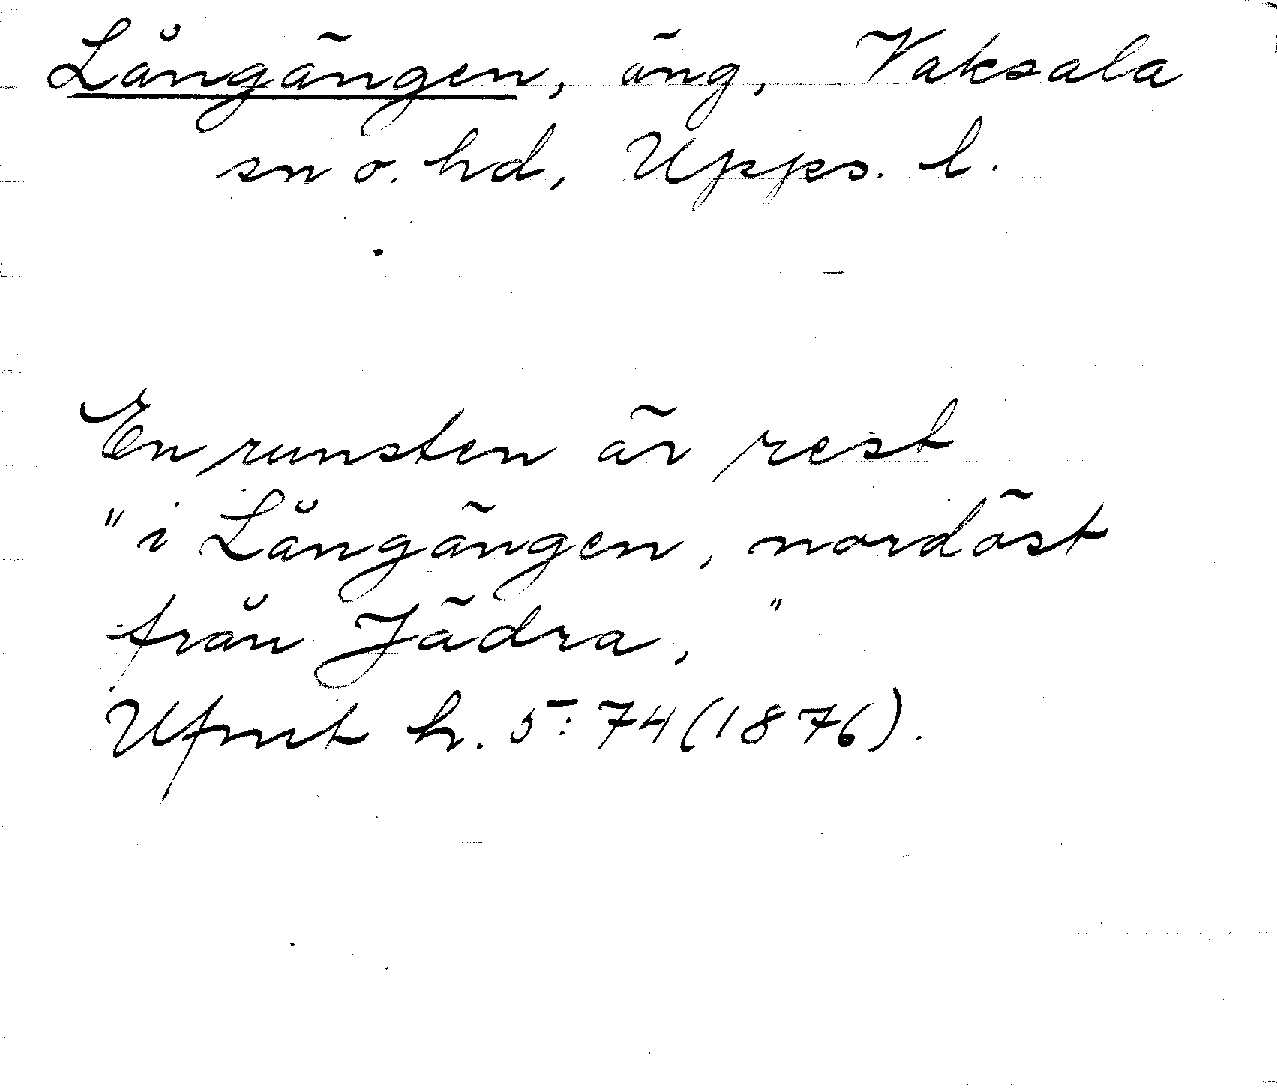 Långängen, äng, Vaksala
sn o. hd, Upps. l.
En runsten är rest
"i Långängen, nordöst
från Jädra,"
Ufmt h. 5:74 (1876).